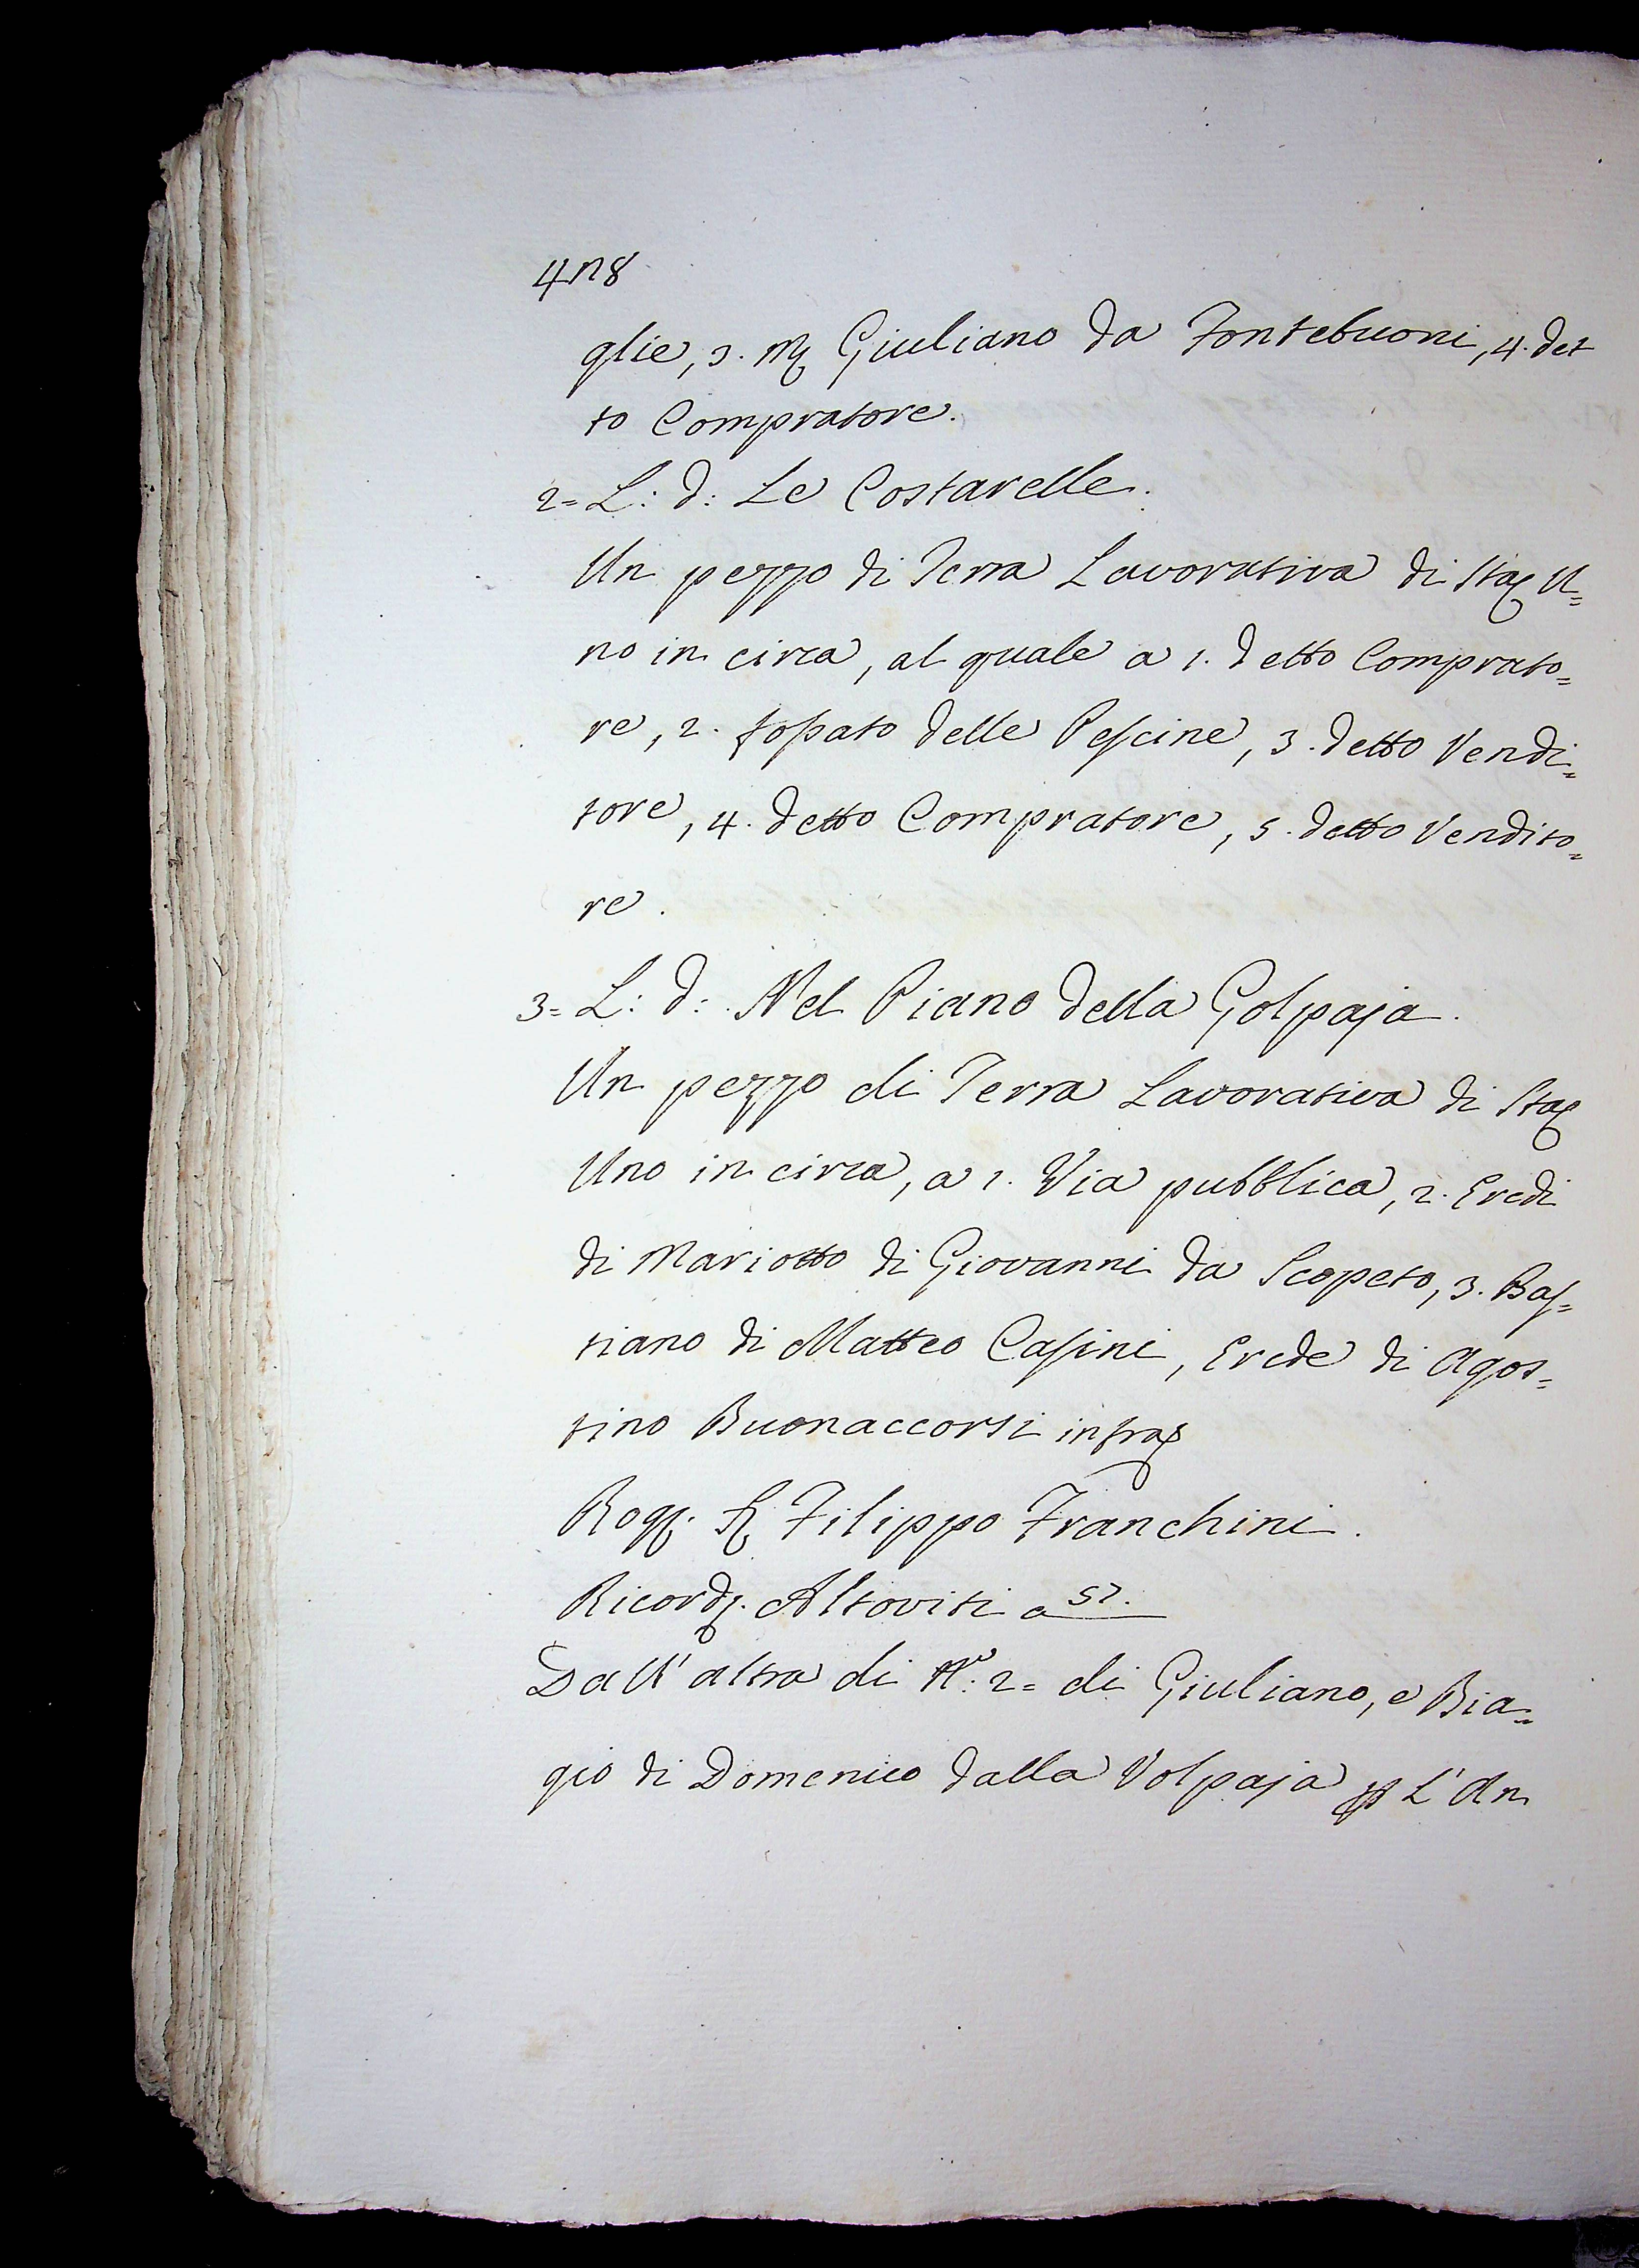 4118
glie, 3. M. Giuliano da Fontebuoni, 4. det
to Compratore.
2= L: d: Le Costarelle.
Un pezzo di Terra Lavorativa di Sta: U=
no in circa, al quale a 1. detto Comprato=
re, 2. fossato delle Pescine, 3. detto Vendi=
tore, 4. detto Compratore, 5. detto Vendito=
re.
3= L: d: Nel Piano della Golpaja.
Un pezzo di Terra Lavorativa di Sta:
Uno in circa, a 1. Via pubblica, 2. Eredi
di Mariotto di Giovanni da Scopeto, 3. Bas=
tiano di Matteo Casini, Erede di Agos=
tino Buonaccorsi infra:
Rog: S: Filippo Franchini.
Ricord: Altoviti a 57.
Dall' altra di N.º 2= di Giuliano, e Bia=
gio di Domenico dalla Volpaja p L' An